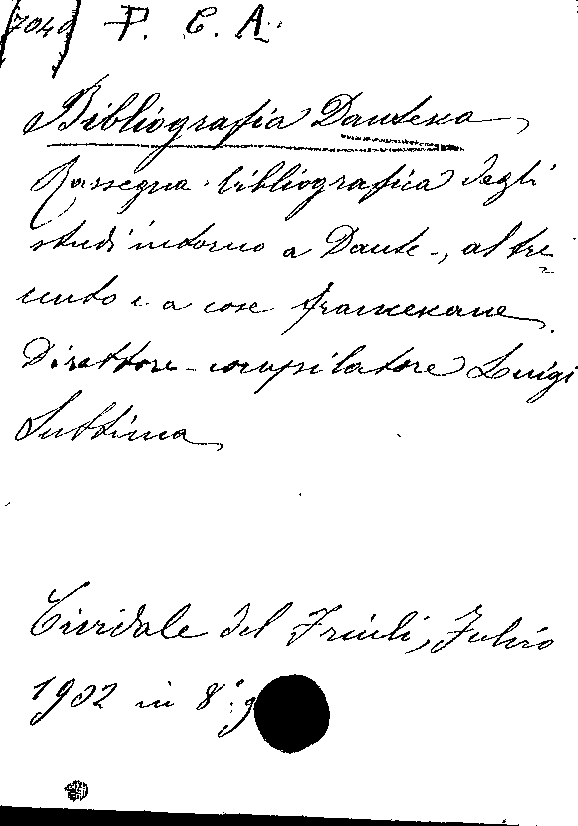 7040 P. C. A.
Bibliografia Dantesca
Rassegna bibliografica degli
studi intorno a Dante, al tre-
cento e a cose francescane.
Direttore-compilatore Luigi
Suttina
Cividale del Friuli, Fulvio
1902 in 8° g